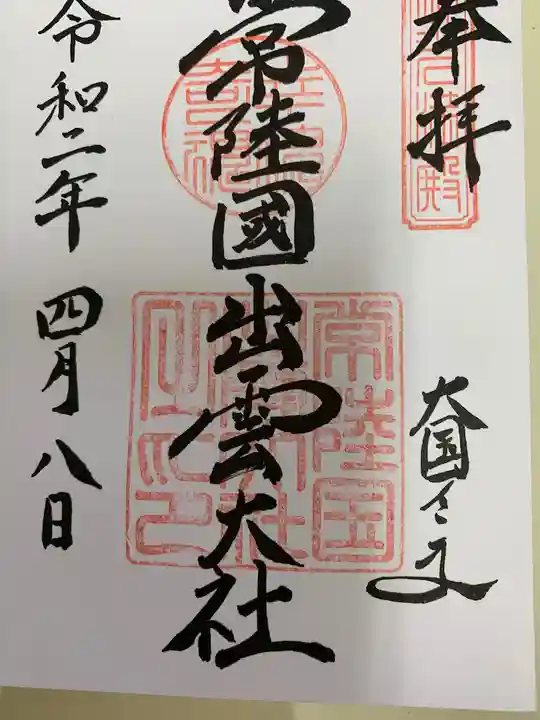 奉拝
大国さま
常陸國出雲大社
令和二年 四月八日
常陸国